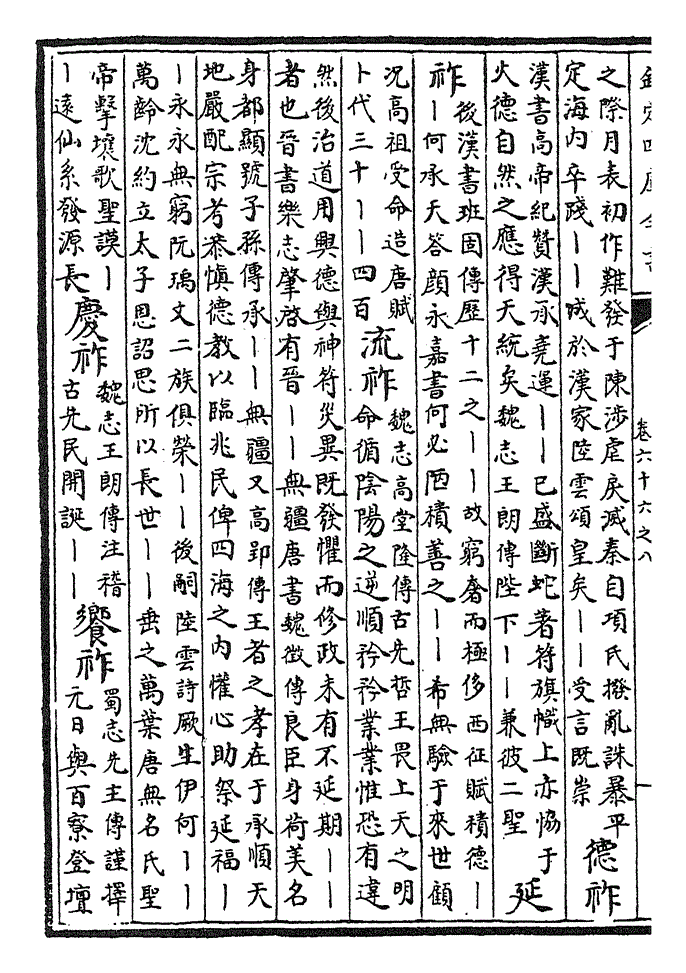 欽定四庫全書
卷六十六之八
之際月表初作難發于陳涉虐戾滅秦自項氏撥亂誅暴平
定海内卒踐丨丨成於漢家陸雲頌皇矣丨丨受言既崇
德祚
漢書高帝紀贊漢承堯運丨丨已盛斷蛇著符旗幟上赤恊于
火德自然之應得天統矣魏志王朗傳陛下丨丨兼彼二聖
延
祚
後漢書班固傳歷十二之丨丨故窮奢而極侈西征賦積德丨
丨何承天答顔永嘉書何必陋積善之丨丨希無驗于來世顧
況高祖受命造唐賦
卜代三十丨丨四百
流祚
魏志高堂隆傳古先哲王畏上天之明
命循陰陽之逆順矜矜業業惟恐有違
然後治道用興德與神符災異既發懼而修政未有不延期丨丨
者也晉書樂志肇啓有晉丨丨無疆唐書魏徵傳良臣身荷美名
身都顯號子孫傳承丨丨無疆又高郢傳王者之孝在于承順天
地嚴配宗考恭慎德教以臨兆民俾四海之内懽心助祭延福丨
丨永永無窮阮瑀文二族俱榮丨丨後嗣陸雲詩厥生伊何丨丨
萬齡沈約立太子恩詔思所以長世丨丨垂之萬葉唐無名氏聖
帝擊壤歌聖謨丨
丨遠仙系發源長
慶祚
魏志王朗傳注稽
古先民開誕丨丨
饗祚
蜀志先主傳謹擇
元日與百寮登壇